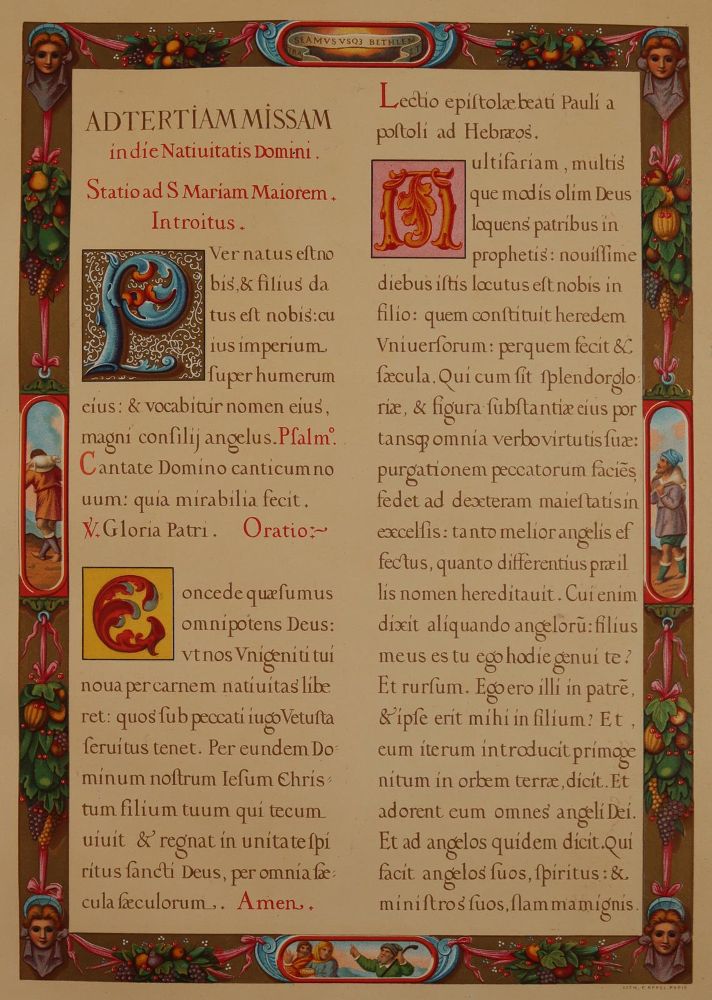 EAMVS VSQ3 BETHLEM
AD TERTIAM MISSAM
in die Natiuitatis Domini.
Statio ad S Mariam Maiorem.
Introitus.
PVer natus est no
bis, & filius da
tus est nobis: cu
ius imperium
super humerum
eius: & vocabitur nomen eius,
magni consilij angelus. Psalmº.
Cantate Domino canticum no
uum: quia mirabilia fecit.
℣. Gloria Patri. Oratio:~
Concede quæsumus
omnipotens Deus:
vt nos Vnigeniti tui
noua per carnem natiuitas libe
ret: quos sub peccati iugo Vetusta
seruitus tenet. Per eundem Do-
minum nostrum Iesum Chris-
tum filium tuum qui tecum
uiuit & regnat in unitate spi
ritus sancti Deus, per omnia sæ-
cula sæculorum. Amen.
Lectio epistolæ beati Pauli a
postoli ad Hebræos.
Multifariam, multis
que modis olim Deus
loquens patribus in
prophetis: nouissime
diebus istis locutus est nobis in
filio: quem constituit heredem
Vniuersorum: per quem fecit &
sæcula. Qui cum sit splendor glo-
riæ, & figura substantiæ eius por
tansq omnia verbo virtutis suæ:
purgationem peccatorum faciēs,
sedet ad dexteram maiestatis in
excelsis: tanto melior angelis ef
fectus, quanto differentius præ il
lis nomen hereditauit. Cui enim
dixit aliquando angelorū: filius
meus es tu ego hodie genui te?
Et rursum. Ego ero illi in patrē,
& ipse erit mihi in filium? Et,
eum iterum introducit primoge
nitum in orbem terræ, dicit. Et
adorent eum omnes angeli Dei.
Et ad angelos quidem dicit. Qui
facit angelos suos, spiritus: &
ministros suos, flammam ignis.
LITH. F. APPEL. PARIS